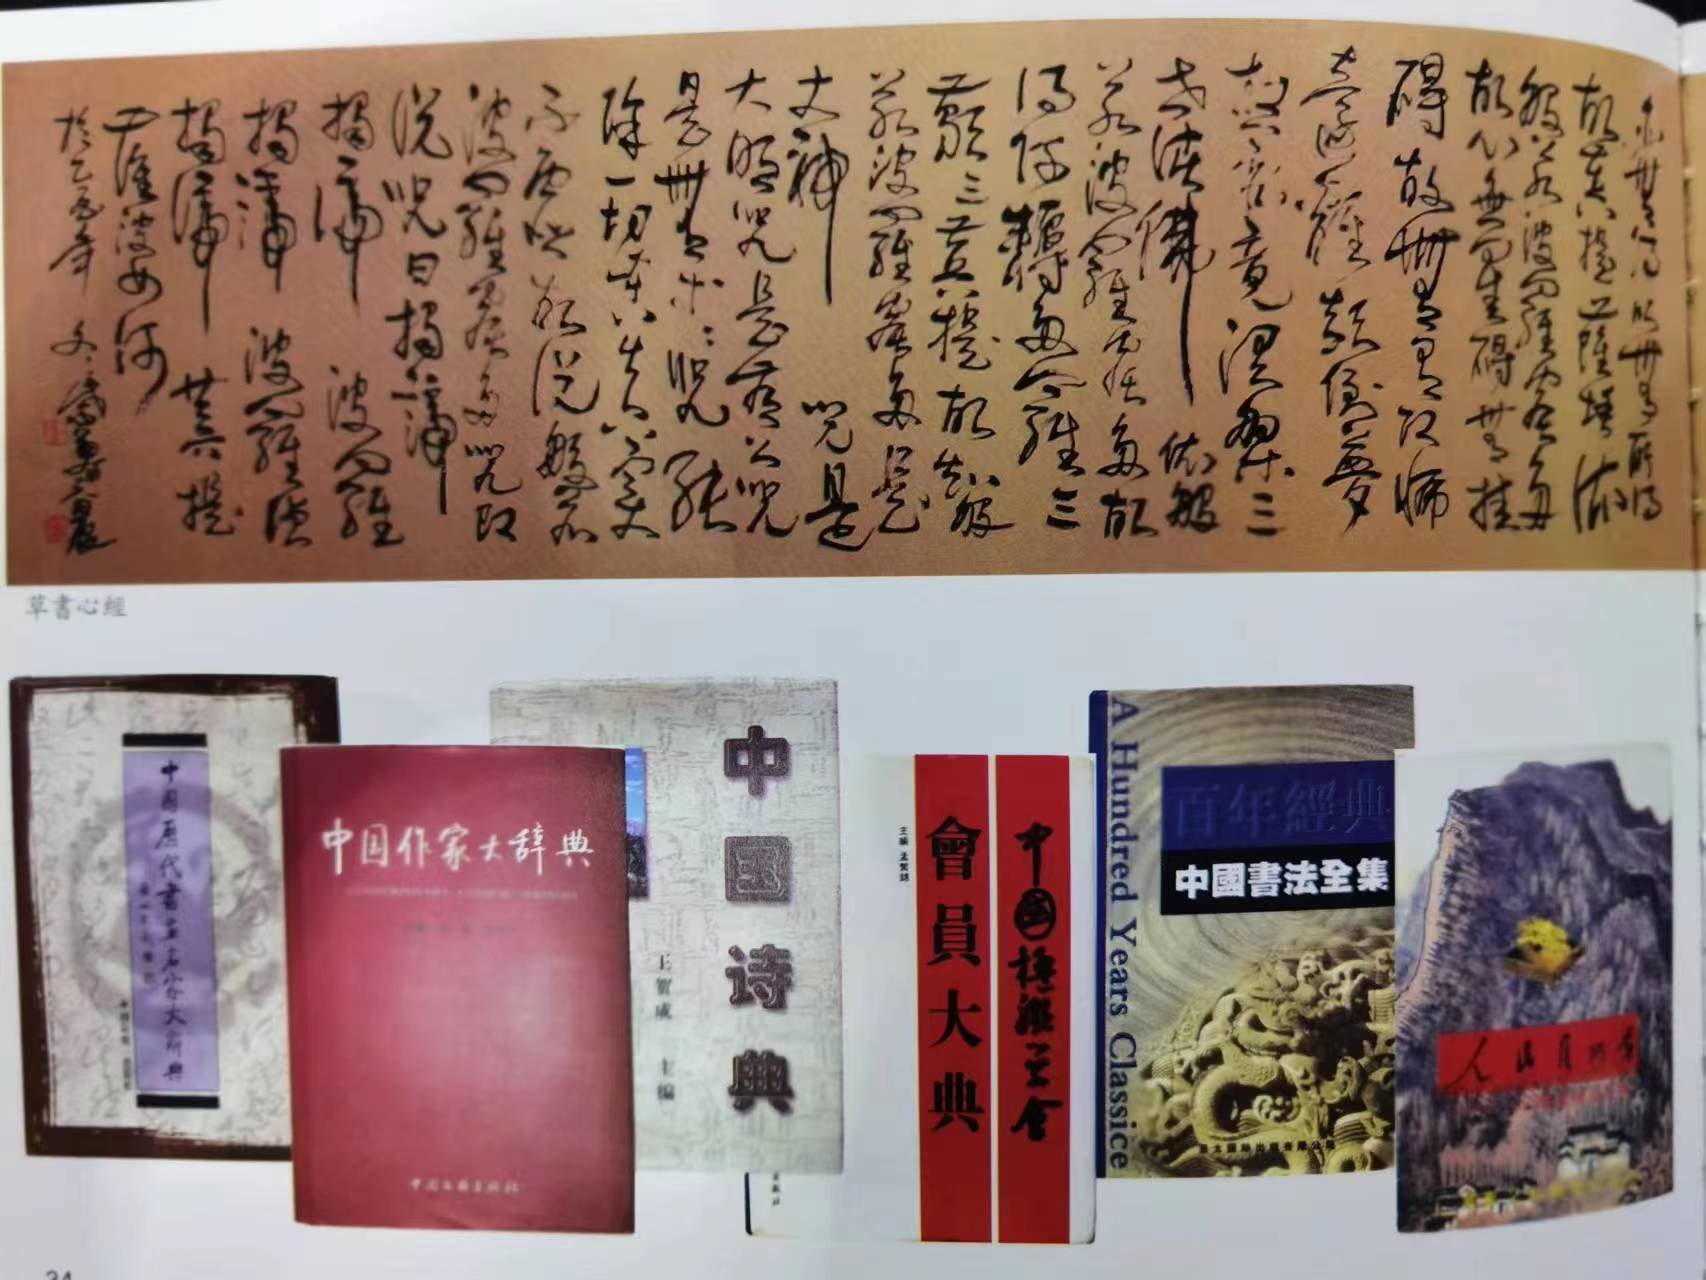 亦無得以無所得
故菩提薩埵依
般若波羅蜜多
故心無罣碍無有挂
碍故無有恐怖
遠離顛倒夢
想究竟涅槃三
世諸佛依般
若波羅蜜多故
得阿耨多羅三
藐三菩提故知般
若波羅蜜多是
大神咒是
大明咒是無上咒
是無等等咒能
除一切苦真實
不虛故說般若
波羅蜜多咒即
說咒曰揭諦
揭諦波羅
揭諦波羅僧
揭諦菩提
薩婆訶
於乙酉年
草書心經
中国历代書画名家大辞典
中国作家大辞典
中国文联出版社
中国诗典
王贺成 主编
中国楹联学会
會員大典
主编 孟繁锦
A Hundred Years Classice
百年經典
中國書法全集
人民美術
34